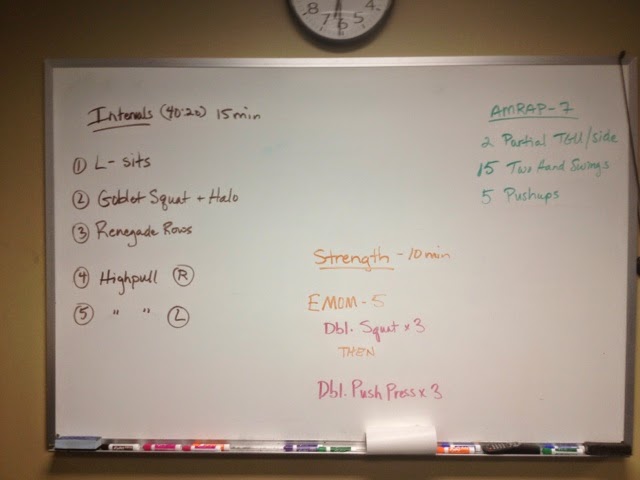 8
7
6
5
Intervals (40:20) 15min
① L-sits
② Goblet Squat + Halo
③ Renegade Rows
④ Highpull Ⓡ
⑤ " " Ⓛ
Strength - 10min
EMOM - 5
Dbl. Squat x 3
THEN
Dbl. Push Press x 3
AMRAP - 7
2 Partial TGU/side
15 Two Hand Swings
5 Pushups